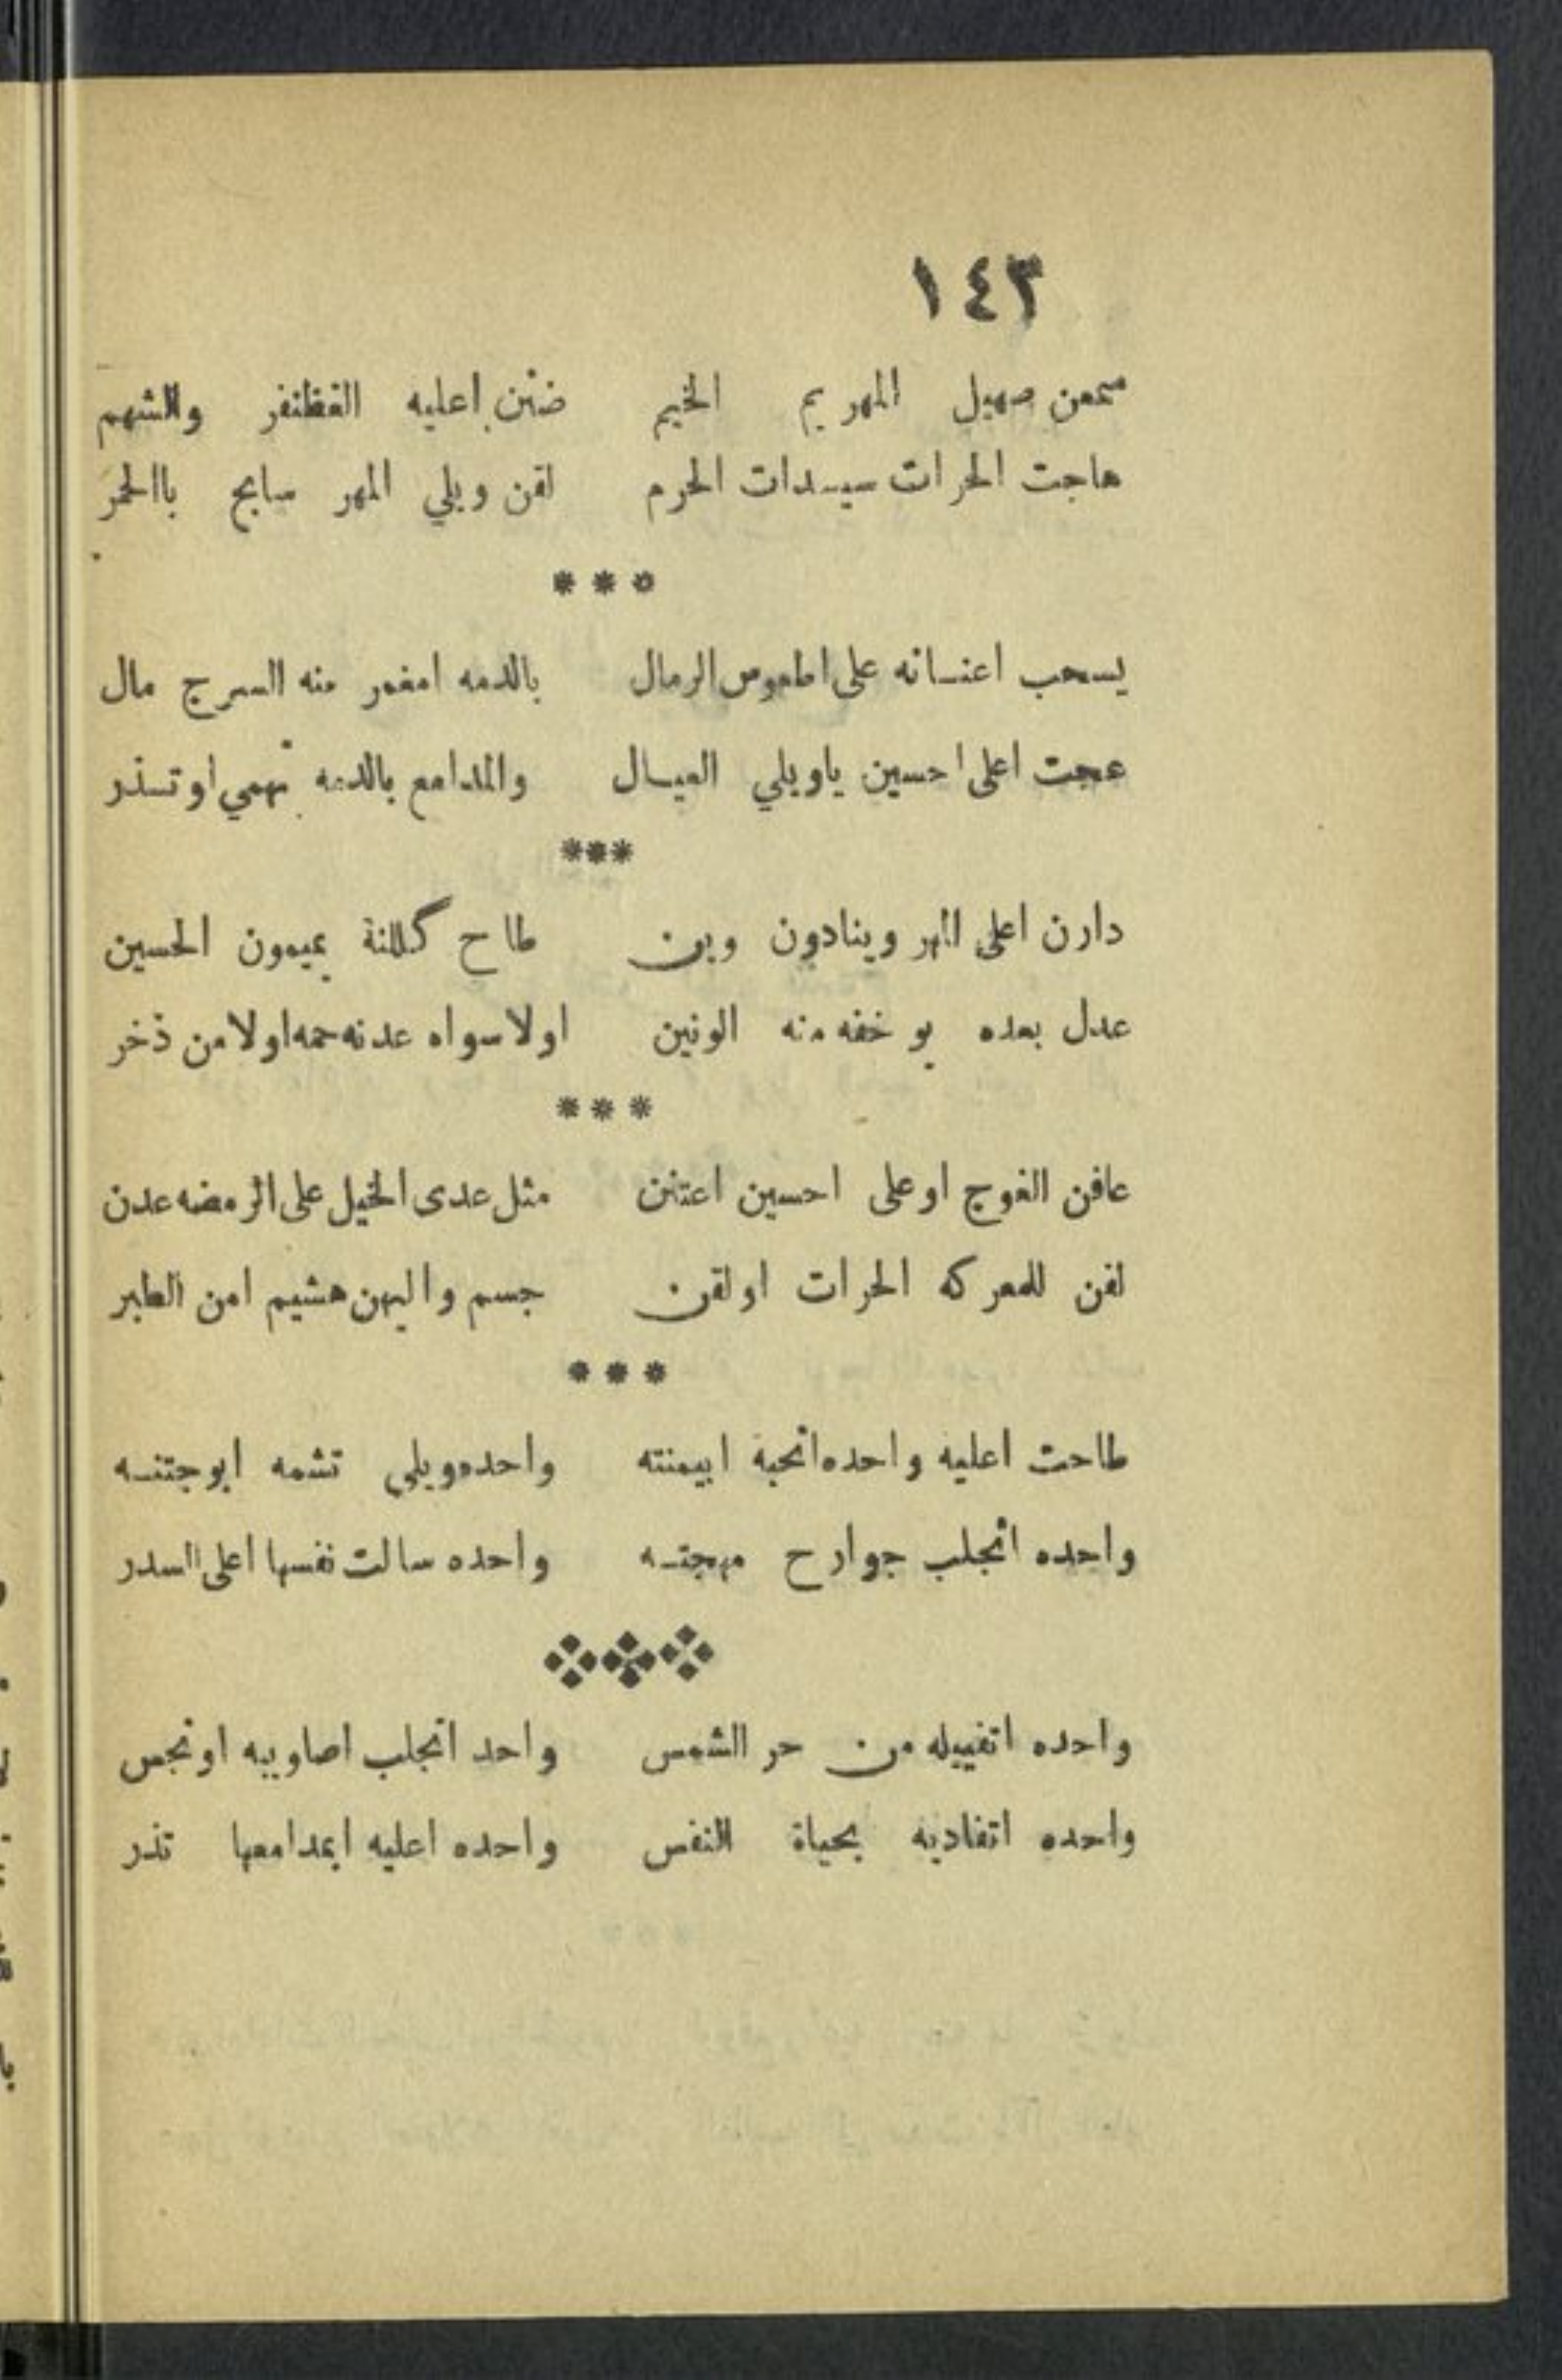 ١٤٣
سمعن صهيل المهر يم الخيم ضنن اعليه الغظنفر والشهم
هاجت الحرات سيدات الحرم لقن ويلي المهر سابح باالحمر
* * *
يسحب اعنانه على اطعوس الرمال بالدمه امغمر منه السرج مال
عجت اعلى احسين ياويلي العيال والمدامع بالدمه تهمي او تسذر
***
دارن اعلى المهر وينادون وين طاح كللنة يميمون الحسين
عدل بعده بو خفه منه الونين اولا سواه عدنه حمه اولا من ذخر
* * *
عافن الفوج او على احسين اعتنن مثل عدى الخيل على الرمضه عدن
لفن للمعركه الحرات اولقن جسم واليهن هشيم امن الطبر
* * *
طاحت اعليه واحده اتحبه ابيمنته واحده ويلي تشمه ابوجتنه
واحده اتجلب جوارح مهجته واحده سالت نفسها اعلى السدر
واحده اتفييله من حر الشمس واحد اتجلب اصاويبه او تجس
واحده اتفاديه بحياة النفس واحده اعليه ابمدامعها تذر